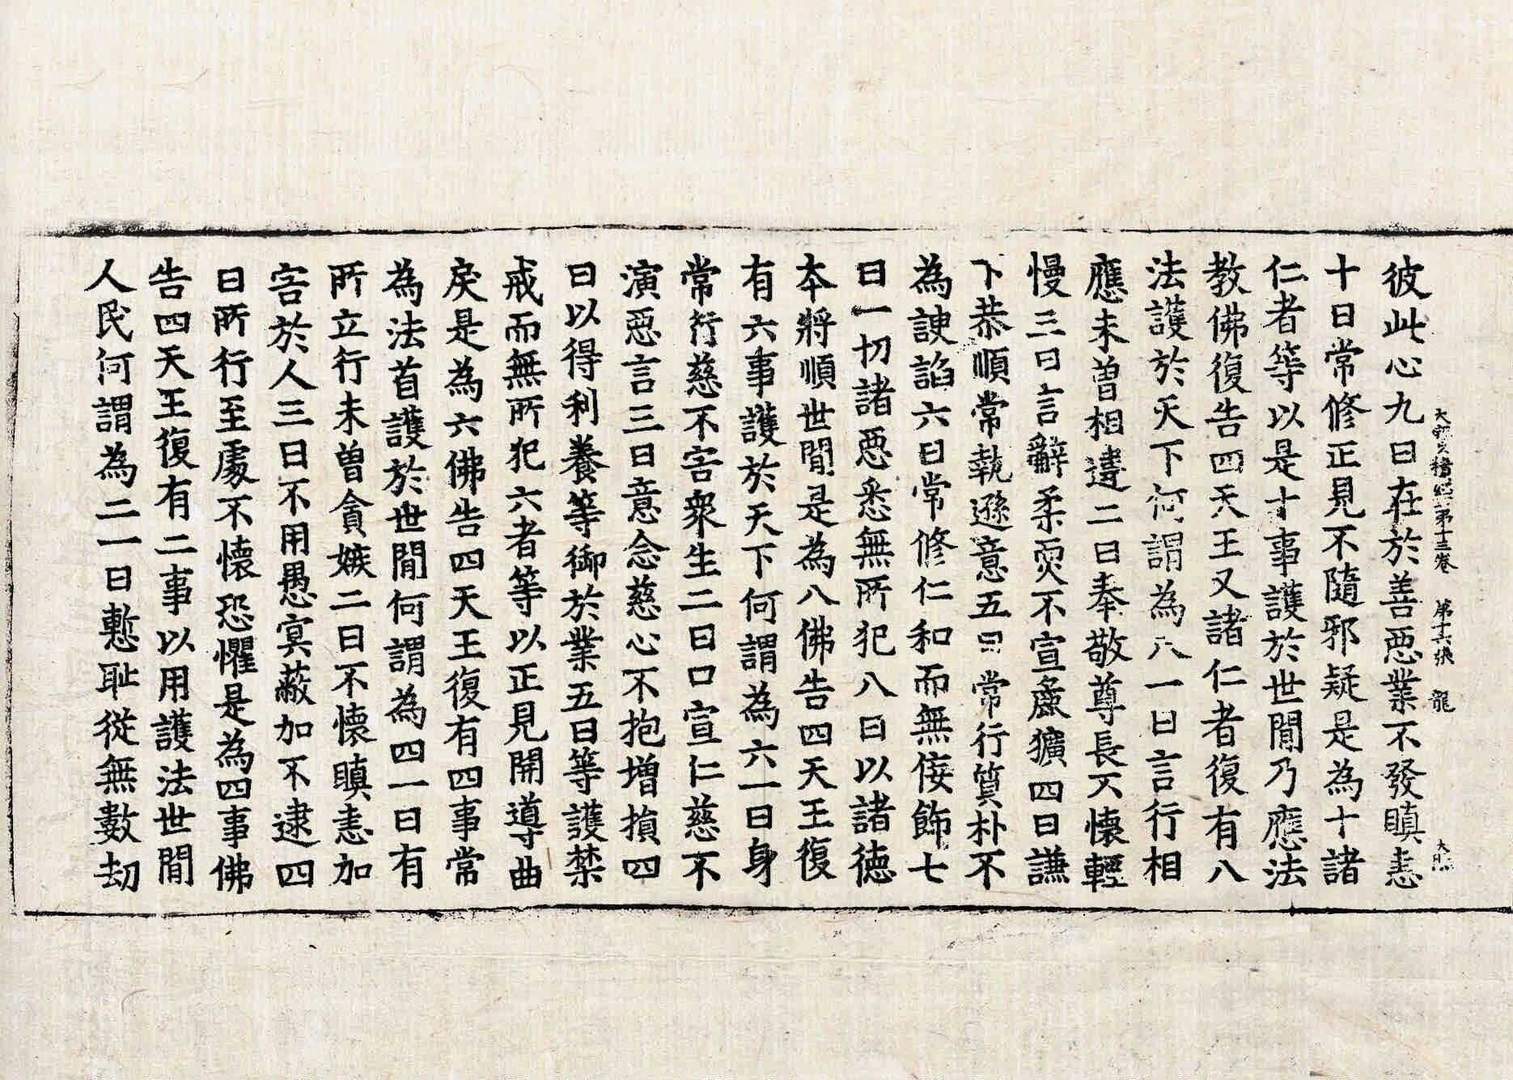 大寶積經第十三卷　第十六張　龍
彼此心九曰在於善惡業不發瞋恚
十曰常修正見不隨邪疑是為十諸
仁者等以是十事護於世閒乃應法
教佛復告四天王又諸仁者復有八
法護於天下何謂為八一曰言行相
應未曾相違二曰奉敬尊長不懷輕
慢三曰言辭柔耎不宣麁獷四曰謙
下恭順常執遜意五曰常行質朴不
為諛諂六曰常修仁和而無佞飾七
曰一切諸惡悉無所犯八曰以諸德
本將順世閒是為八佛告四天王復
有六事護於天下何謂為六一曰身
常行慈不害衆生二曰口宣仁慈不
演惡言三曰意念慈心不抱增損四
曰以得利養等御於業五曰等護禁
戒而無所犯六者等以正見開導曲
戾是為六佛告四天王復有四事常
為法首護於世閒何謂為四一曰有
所立行未曾貪嫉二曰不懷瞋恚加
害於人三曰不用愚冥蔽加不逮四
曰所行至處不懷恐懼是為四事佛
告四天王復有二事以用護法世閒
人民何謂為二一曰慙恥從無數劫